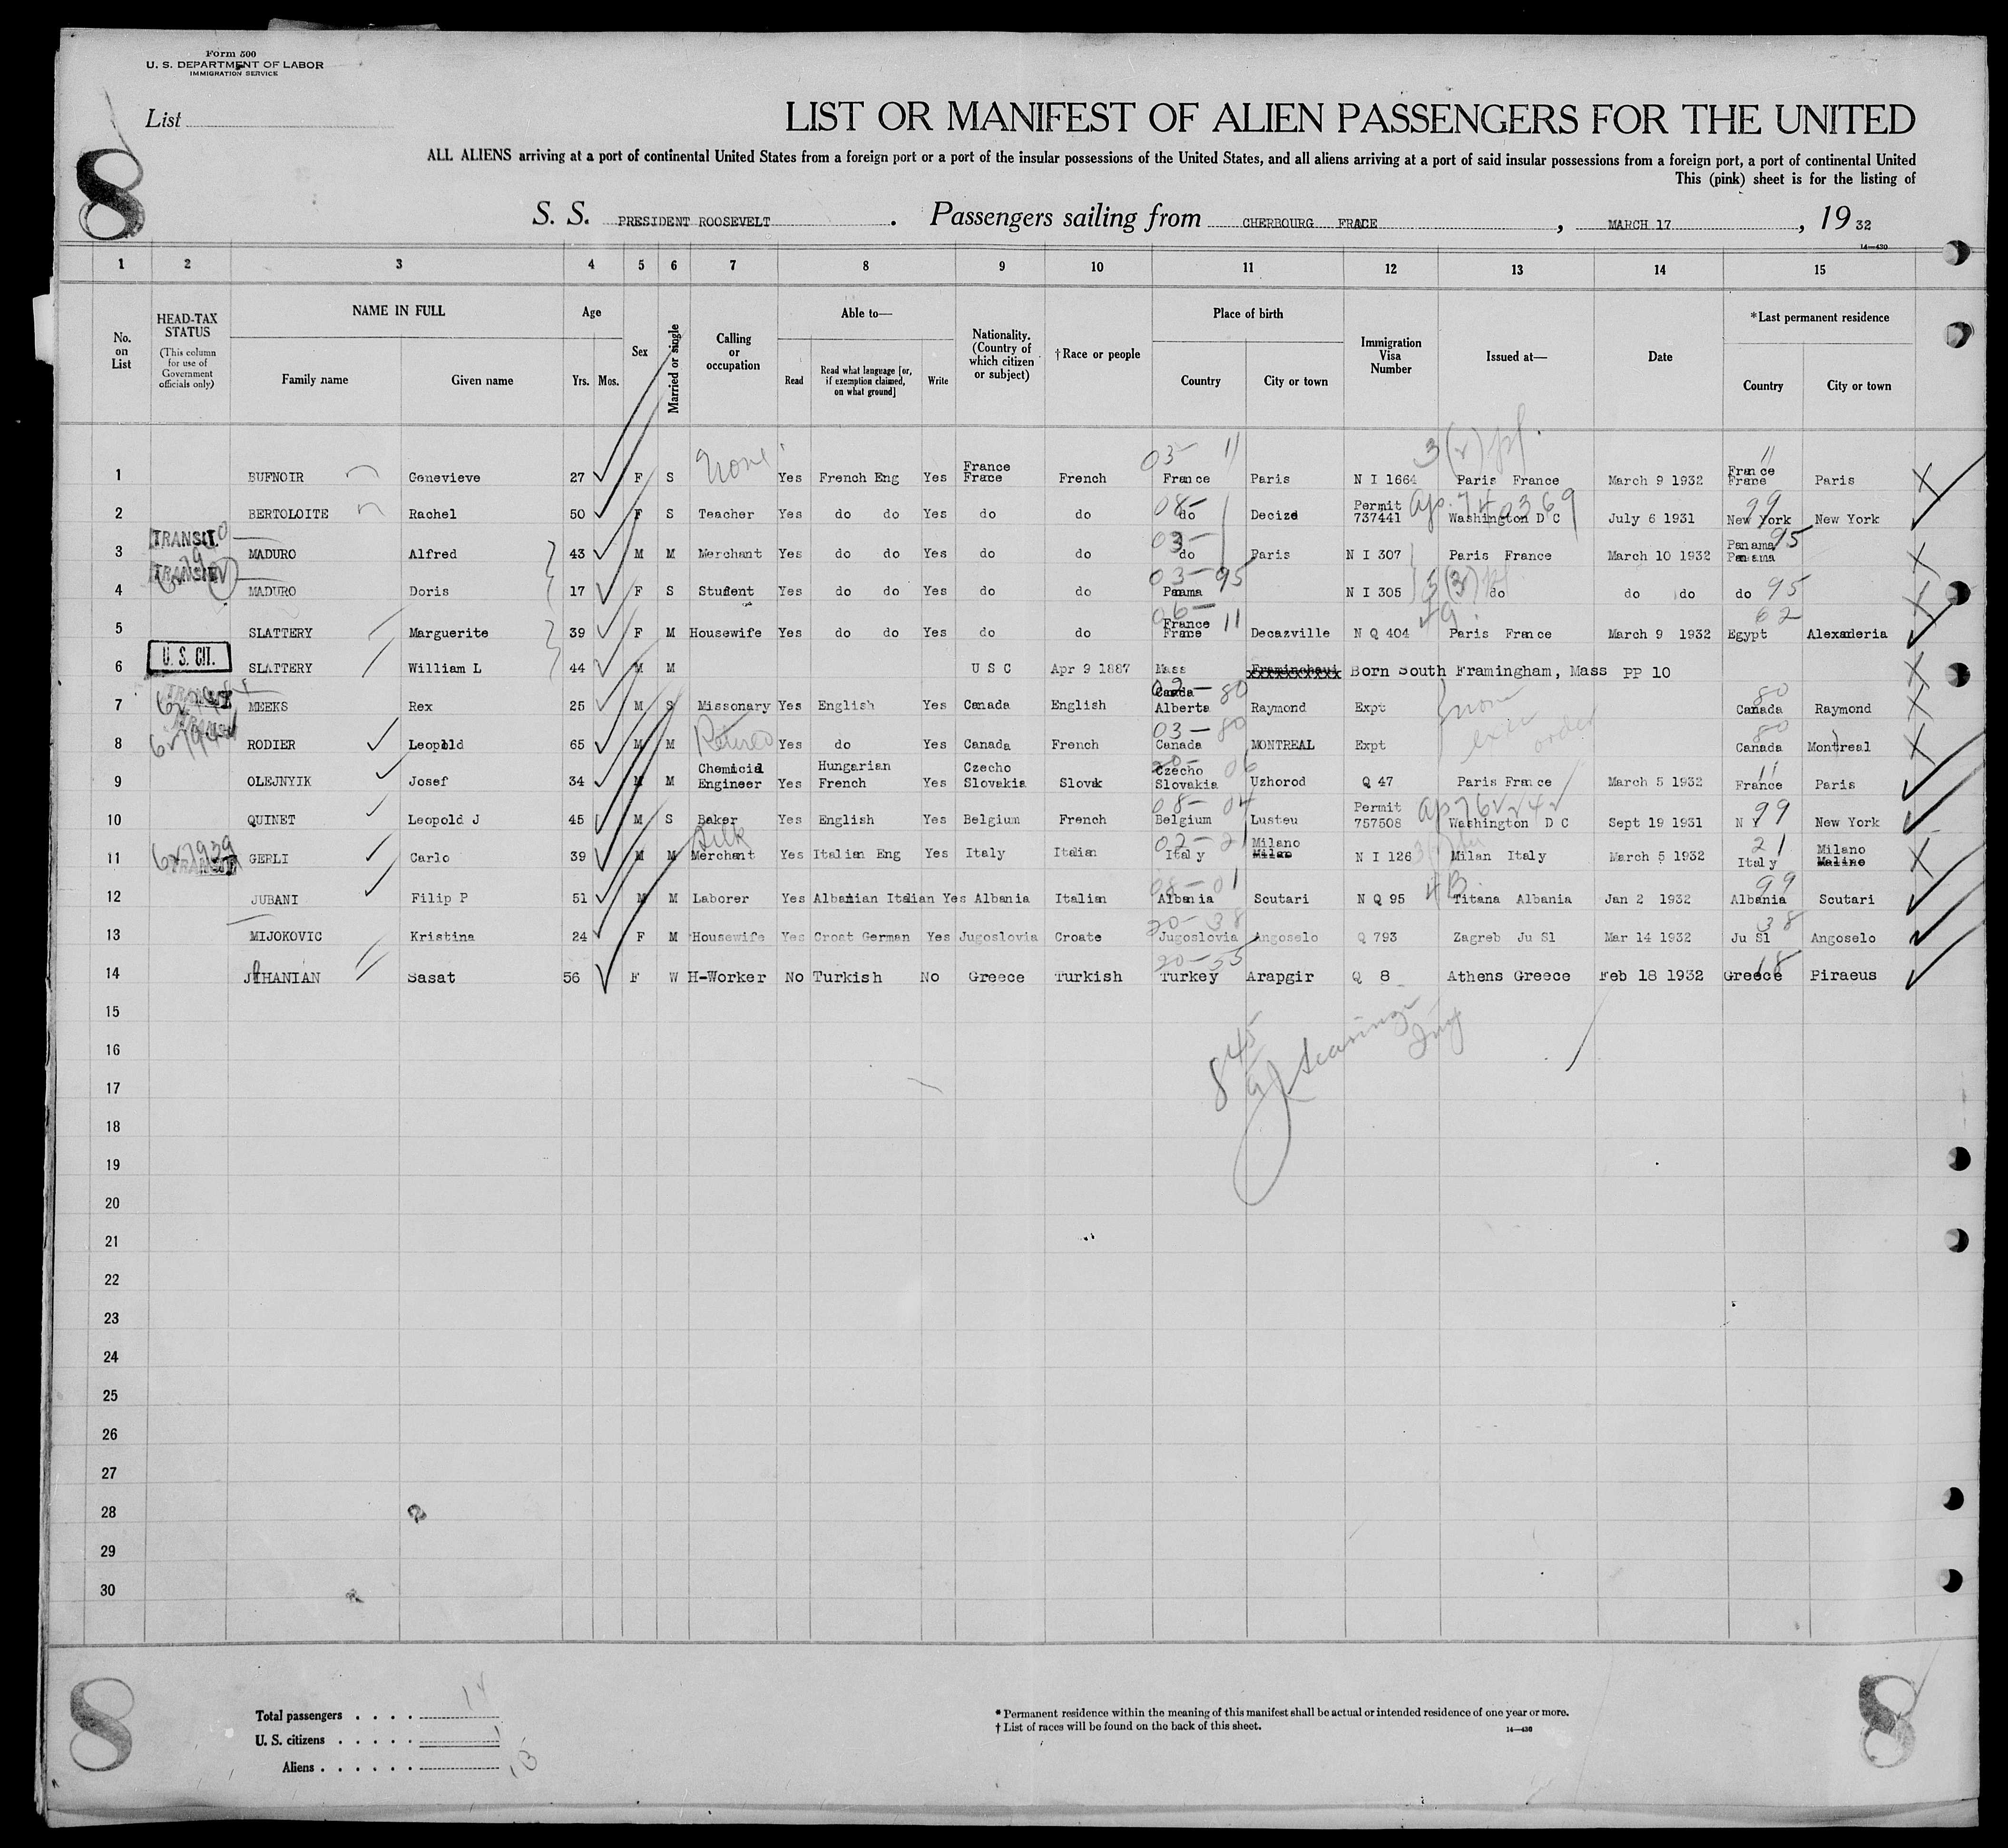 Form 500
U. S. DEPARTMENT OF LABOR
IMMIGRATION SERVICE
List
8
LIST OR MANIFEST OF ALIEN PASSENGERS FOR THE UNITED
ALL ALIENS arriving at a port of continental United States from a foreign port or a port of the insular possessions of the United States, and all aliens arriving at a port of said insular possessions from a foreign port, a port of continental United
This (pink) sheet is for the listing of
S. S. PRESIDENT ROOSEVELT . Passengers sailing from CHERBOURG FRACE , MARCH 17 , 19 32
14—430
1 2 3 4 5 6 7 8 9 10 11 12 13 14 15
No. on List
HEAD-TAX STATUS
(This column for use of Government officials only)
NAME IN FULL
Family name Given name
Age
Yrs. Mos.
Sex
Married or single
Calling or occupation
Able to—
Read
Read what language [or, if exemption claimed, on what ground]
Write
Nationality. (Country of which citizen or subject)
†Race or people
Place of birth
Country City or town
Immigration Visa Number
Issued at—
Date
*Last permanent residence
Country City or town
1 BUFNOIR Genevieve 27 F S None Yes French Eng Yes France Frace French 03- 11 France Paris N I 1664 3(2) Paris France March 9 1932 11 France Frane Paris
2 BERTOLOITE Rachel 50 F S Teacher Yes do do Yes do do 08- do Decize Permit 737441 740369 Washington D C July 6 1931 99 New York New York
3 TRANSIT. MADURO Alfred 43 M M Merchant Yes do do Yes do do 03- do Paris N I 307 Paris France March 10 1932 Panama 95 Panama
4 TRANSIT MADURO Doris 17 F S Student Yes do do Yes do do 03-95 Panama N I 305 3(3) do do do do 95
5 SLATTERY Marguerite 39 F M Housewife Yes do do Yes do do 06- 11 France Frane Decazville N Q 404 Paris France March 9 1932 62 Egypt Alexaderia
6 U. S. CIT. SLATTERY William L 44 M M U S C Apr 9 1887 Mass Born South Framingham, Mass PP 10
7 MEEKS Rex 25 M S Missonary Yes English Yes Canada English 02-80 Canada Alberta Raymond Expt 80 Canada Raymond
8 RODIER Leopold 65 M M Retired Yes do Yes Canada French 03-80 Canada MONTREAL Expt 80 Canada Montreal
9 OLEJNYIK Josef 34 M M Chemicial Engineer Yes Hungarian French Yes Czecho Slovakia Slovak 20-06 Czecho Slovakia Uzhorod Q 47 Paris France March 5 1932 11 France Paris
10 QUINET Leopold J 45 M S Baker Yes English Yes Belgium French 08-04 Belgium Lusteu Permit 757508 Washington D C Sept 19 1931 N Y 99 New York
11 627939 TRANSIT GERLI Carlo 39 M M Silk Merchant Yes Italian Eng Yes Italy Italian 02-21 Italy Milano Milan N I 126 Milan Italy March 5 1932 21 Italy Milano Maline
12 JUBANI Filip P 51 M M Laborer Yes Albanian Italian Yes Albania Italian 08-01 Albania Scutari N Q 95 4B Titana Albania Jan 2 1932 99 Albania Scutari
13 MIJOKOVIC Kristina 24 F M Housewife Yes Croat German Yes Jugoslovia Croate 20-38 Jugoslovia Angoselo Q 793 Zagreb Ju Sl Mar 14 1932 38 Ju Sl Angoselo
14 JIHANIAN Sasat 56 F W H-Worker No Turkish No Greece Turkish 20-55 Turkey Arapgir Q 8 Athens Greece Feb 18 1932 18 Greece Piraeus
15
16
17
18
19
20
21
22
23
24
25
26
27
28
29
30
8
Total passengers . . . . 14
U. S. citizens . . . . . 1
Aliens . . . . . . 13
* Permanent residence within the meaning of this manifest shall be actual or intended residence of one year or more.
† List of races will be found on the back of this sheet.
14—430
8